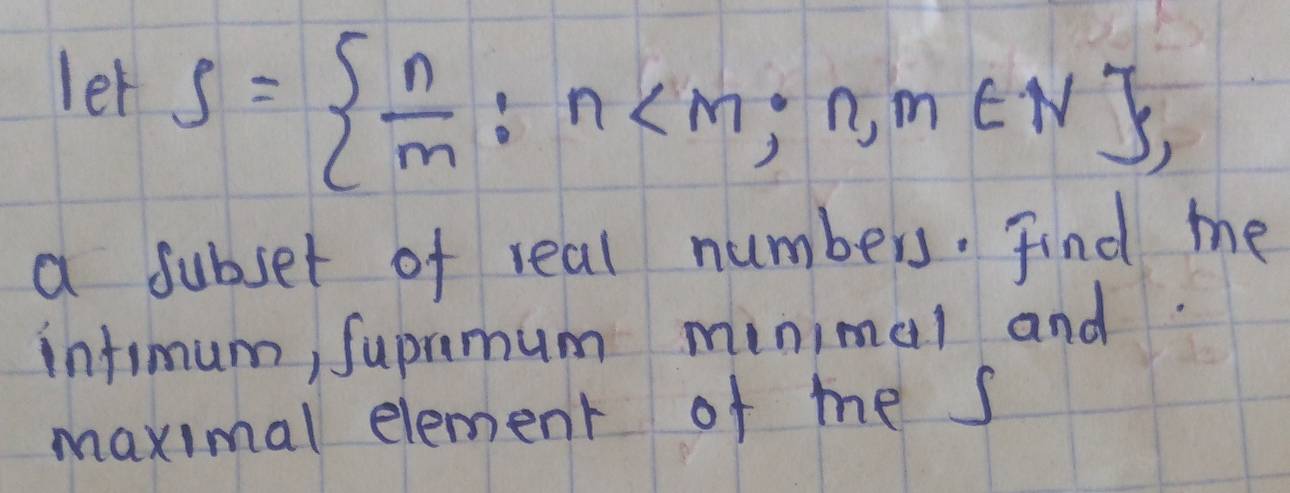 let S = { n/m : n < m ; n, m ∈ N },
a subset of real numbers. Find the
infimum, supremum minimal and
maximal element of the S